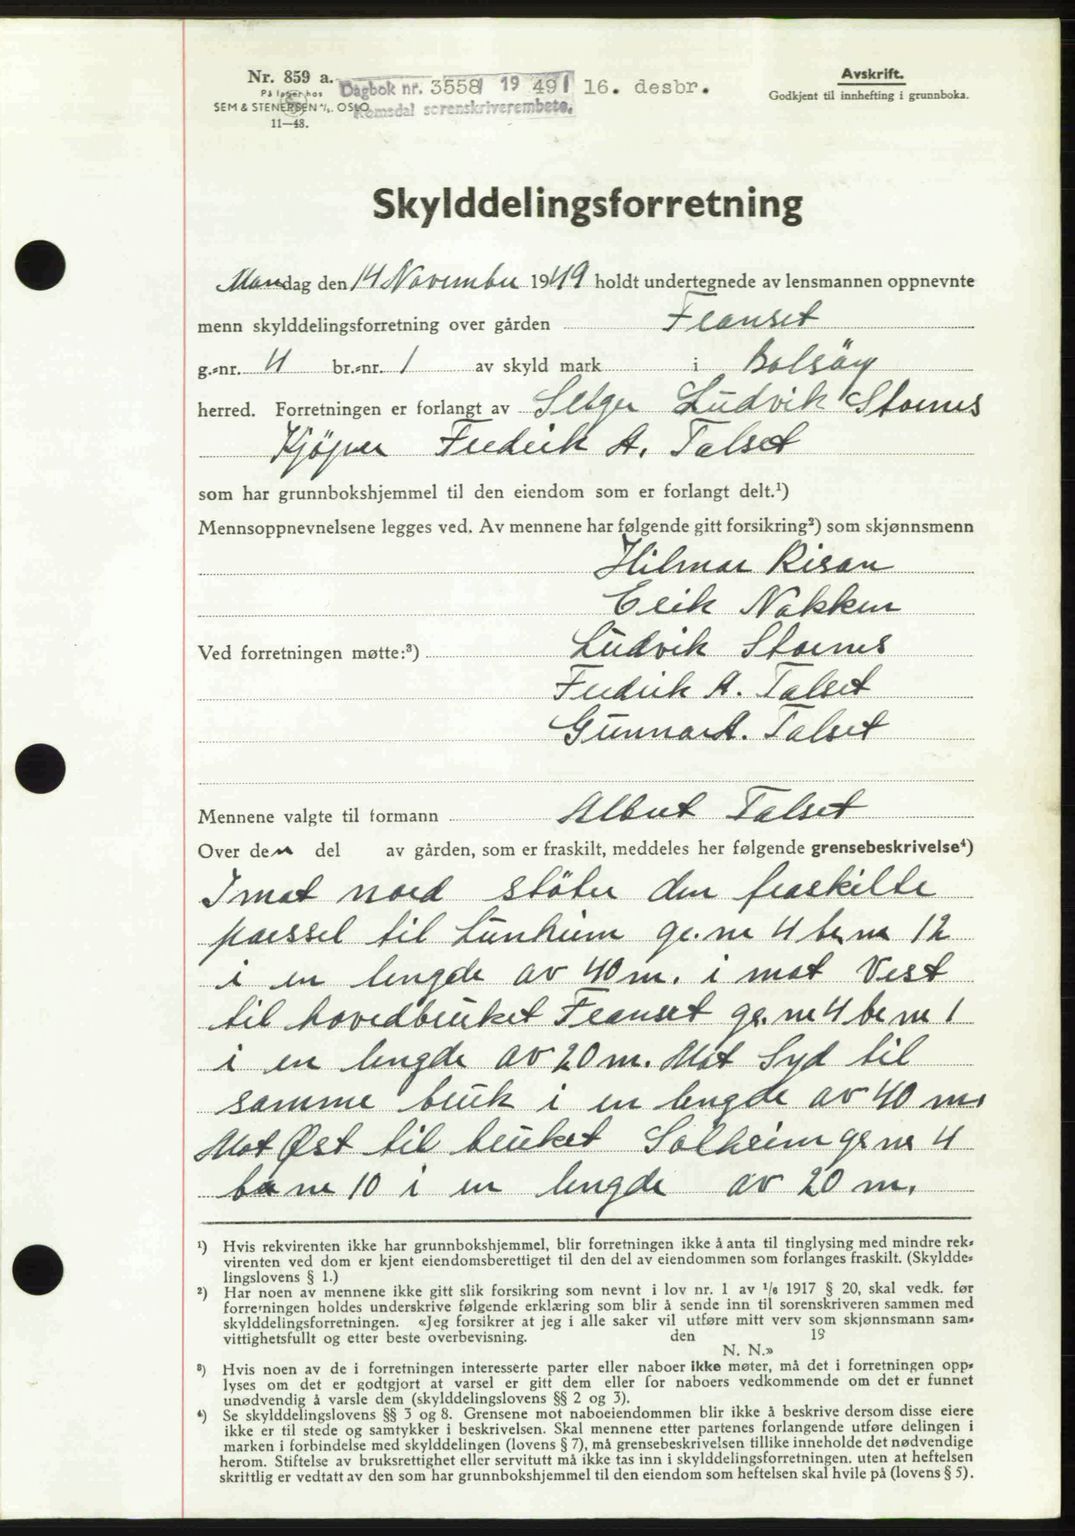 Nr. 859 a.
På lager hos
SEM & STENERSEN A/S. OSLO
11—48.
Dagbok nr. 3558 1949 16. desbr.
Romsdal sorenskriverembete.
Avskrift.
Godkjent til innhefting i grunnboka.
Skylddelingsforretning
Mandag den 14 November 1949 holdt undertegnede av lensmannen oppnevnte
menn skylddelingsforretning over gården Franset
g.-nr. 4 br.-nr. 1 av skyld mark i Bolsöy
herred. Forretningen er forlangt av Selger Ludvik Stornes
Kjöper Fredrik A. Talset
som har grunnbokshjemmel til den eiendom som er forlangt delt.¹)
Mennsoppnevnelsene legges ved. Av mennene har følgende gitt forsikring²) som skjønnsmenn
Hilmar Risan
Erik Nakken
Ved forretningen møtte:³) Ludvik Stornes
Fredrik A. Talset
Gunnar A. Talset
Mennene valgte til formann Albert Talset
Over den del av gården, som er fraskilt, meddeles her følgende grensebeskrivelse⁴)
I mot nord stöter den fraskilte
parssel til Lunheim gr. nr 4 br. nr 12
i en lengde av 40 m. i mot Vest
til hovedbruket Franset gr. nr 4 br nr 1
i en lengde av 20 m. Mot Syd til
samme bruk i en lengde av 40 m.
Mot Øst til bruket Solheim gr nr 4
br nr 10 i en lengde av 20 m.
¹) Hvis rekvirenten ikke har grunnbokshjemmel, blir forretningen ikke å anta til tinglysing med mindre rek-
virenten ved dom er kjent eiendomsberettiget til den del av eiendommen som forlanges fraskilt. (Skyldde-
lingslovens § 1.)
²) Har noen av mennene ikke gitt slik forsikring som nevnt i lov nr. 1 av 1/6 1917 § 20, skal vedk. før
forretningen holdes underskrive følgende erklæring som blir å sende inn til sorenskriveren sammen med
skylddelingsforretningen. «Jeg forsikrer at jeg i alle saker vil utføre mitt verv som skjønnsmann sam-
vittighetsfullt og etter beste overbevisning. den 19
N. N.»
³) Hvis noen av de i forretningen interesserte parter eller naboer ikke møter, må det i forretningen opp-
lyses om det er godtgjort at varsel er gitt dem eller for naboers vedkommende om det er funnet
unødvendig å varsle dem (skylddelingslovens §§ 2 og 3).
⁴) Se skylddelingslovens §§ 3 og 8. Grensene mot naboeiendommen blir ikke å beskrive dersom disse eiere
ikke er til stede og samtykker i beskrivelsen. Skal mennene etter partenes forlangende utføre delingen i
marken i forbindelse med skylddelingen (lovens § 7), må grensebeskrivelsen tillike inneholde det nødvendige
herom. Stiftelse av bruksrettighet eller servitutt må ikke tas inn i skylddelingsforretningen, uten at heftelsen
skrittlig er vedtatt av den som har grunnbokshjemmel til den eiendom som heftelsen skal hvile på (lovens § 5).